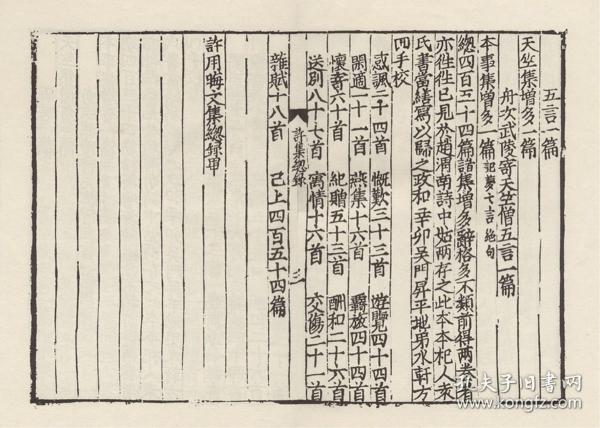 五言一篇
天竺集增多一篇
舟次武陵寄天竺僧五言一篇
本事集增多一篇記夢七言絶句
緫四百五十四篇諸集增多辭格多不類前得兩卷者
亦徃徃已見於趙渭南詩中姑兩存之此本本杞人宋
氏書當繕寫以歸之政和辛卯吴門昇平地弟水軒方
回手校
感諷二十四首 慨歎三十三首 遊覽四十四首
閑適一十一首 燕集十六首 羇旅四十四首
懷寄六十首 紀贈五十三首 酬和二十六首
送别八十七首 寓情十六首 交傷二十一首
許集緫録 三
雜賦十八首 已上四百五十四篇
許用晦文集緫録畢
孔夫子旧书网
www.kongfz.com